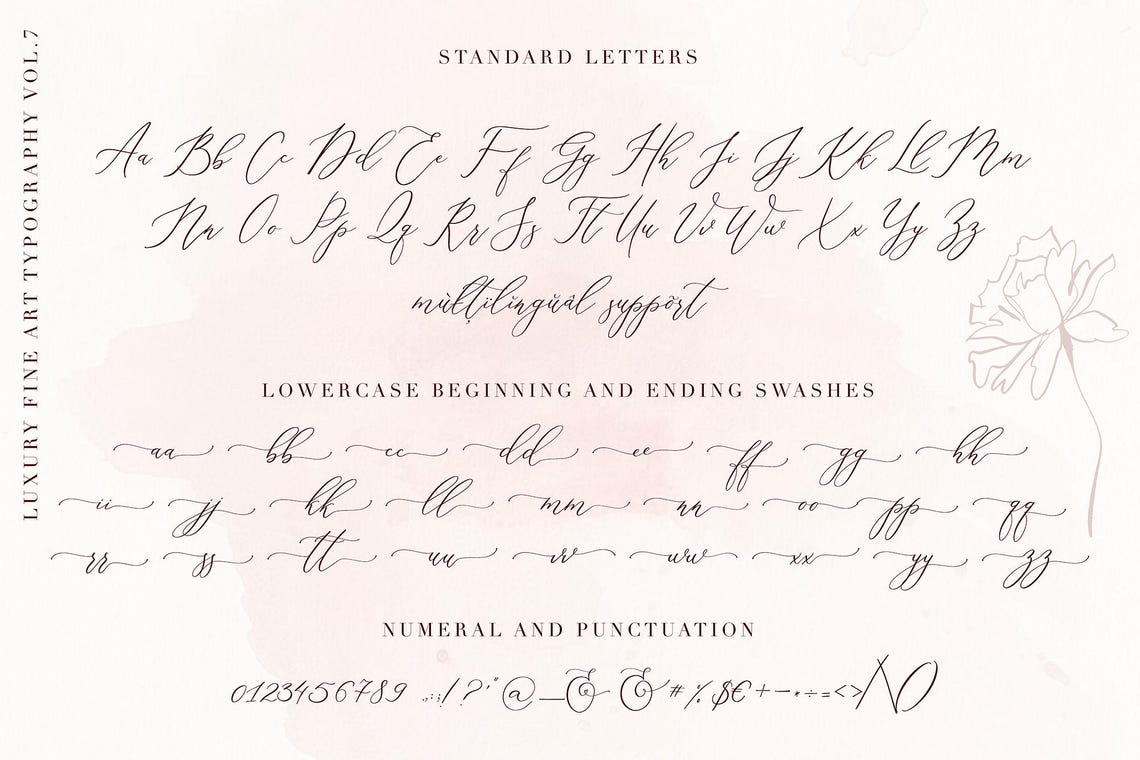 LUXURY FINE ART TYPOGRAPHY VOL.7
STANDARD LETTERS
Aa Bb Cc Dd Ee Ff Gg Hh Ii Jj Kk Ll Mm
Nn Oo Pp Qq Rr Ss Tt Uu Vv Ww Xx Yy Zz
LOWERCASE BEGINNING AND ENDING SWASHES
aa bb cc dd ee ff gg hh
ii jj kk ll mm nn oo pp qq
rr ss tt uu vv ww xx yy zz
NUMERAL AND PUNCTUATION
0123456789 .,:;!?'" @ _ & & # % $ € + - * ÷ = < > / \ ( )